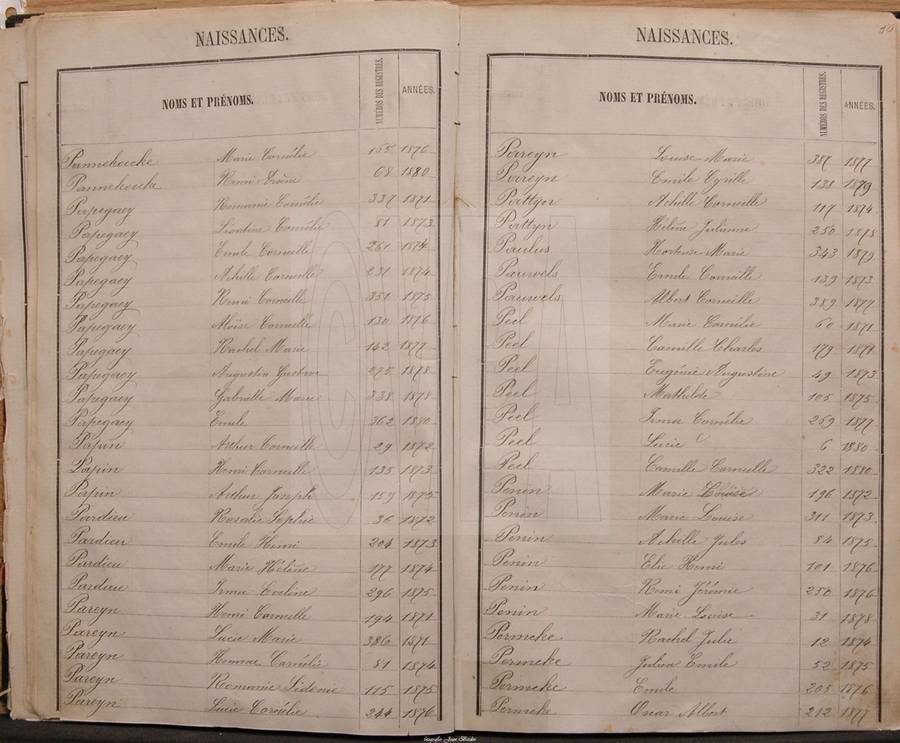 NAISSANCES.
NOMS ET PRÉNOMS. NUMÉROS DES REGISTRES. ANNÉES.
Pannekoucke Marie Cornélie 155 1876
Pannekoucke Remi Arsène 68 1880
Papegaey Romanie Cornélie 337 1871
Papegaey Léontine Cornélie 81 1873
Papegaey Emile Corneille 261 1874
Papegaey Achille Corneille 231 1874
Papegaey Remi Corneille 351 1875
Papegaey Aloïse Corneille 130 1876
Papegaey Rachel Marie 142 1877
Papegaey Augustin Gustave 295 1878
Papegaey Gabrielle Marie 338 1878
Papegaey Emile 362 1880
Papin Arthur Corneille 29 1872
Papin Henri Corneille 135 1873
Papin Arthur Joseph 159 1875
Pardieu Rosalie Sophie 36 1872
Pardieu Emile Henri 204 1873
Pardieu Marie Hélène 177 1874
Pardieu Irma Eveline 296 1875
Pareyn Henri Corneille 194 1871
Pareyn Lucie Marie 386 1871
Pareyn Cornélie 81 1874
Pareyn Romanie Sidonie 115 1875
Pareyn Lucie Cornélie 244 1876
50
NAISSANCES.
NOMS ET PRÉNOMS. NUMÉROS DES REGISTRES. ANNÉES.
Pareyn Louise Marie 387 1877
Pareyn Emile Cyrille 138 1879
Pattyn Achille Corneille 117 1874
Pattyn Hélène Julienne 250 1878
Paulus Hortense Marie 343 1879
Pauwels Emile Corneille 139 1873
Pauwels Albert Corneille 389 1877
Peel Marie Cornélie 60 1871
Peel Camille Charles 179 1871
Peel Eugénie Augustine 49 1873
Peel Mathilde 105 1875
Peel Irma Cornélie 259 1877
Peel Lucie 6 1880
Peel Camille Corneille 322 1880
Penin Marie Louise 196 1872
Penin Marie Louise 311 1873
Penin Achille Jules 84 1875
Penin Elie Henri 101 1876
Penin Remi Jérémie 250 1876
Penin Marie Louise 31 1878
Permeke Rachel Julie 12 1874
Permeke Julien Emile 52 1875
Permeke Emile 205 1876
Permeke Oscar Albert 212 1877